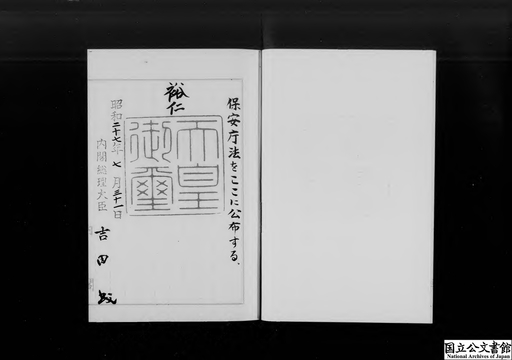 保安庁法をここに公布する。
裕仁
天皇御璽
昭和二十七年七月三十一日
内閣総理大臣
吉田茂
国立公文書館
National Archives of Japan